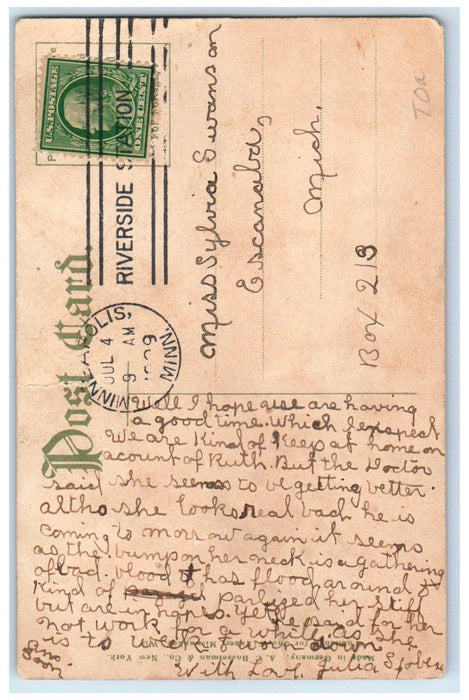 Post Card.
U.S. POSTAGE
ONE CENT
RIVERSIDE STATION
MINNEAPOLIS, MINN.
JUL 4
9 AM
1909
Miss Sylvia Swanson
Escanaba,
Mich.
Box 213
Well I hope use are having
a good time. Which I exspect
We are Kind of Keep at home on
acount of Ruth. But the Doctor
said she seems to be getting better
altho she looks real bad he is
coming to morrow again it seems
as the bump on her neck is a gathering
of bad blood it has flood around &
Kind of her stiff
but are in hopes. Yett
not work for a while as she
is to weak & run down
With Love, Julia
Made in Germany, A. C. Bosselman & Co., New York.